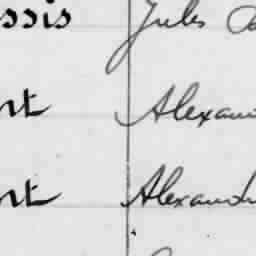 ssis Jules
rt Alexan
rt Alexand